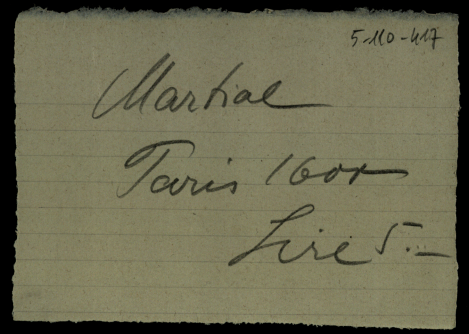 5-110-417
Martial
Paris 1601
Lire 5.-